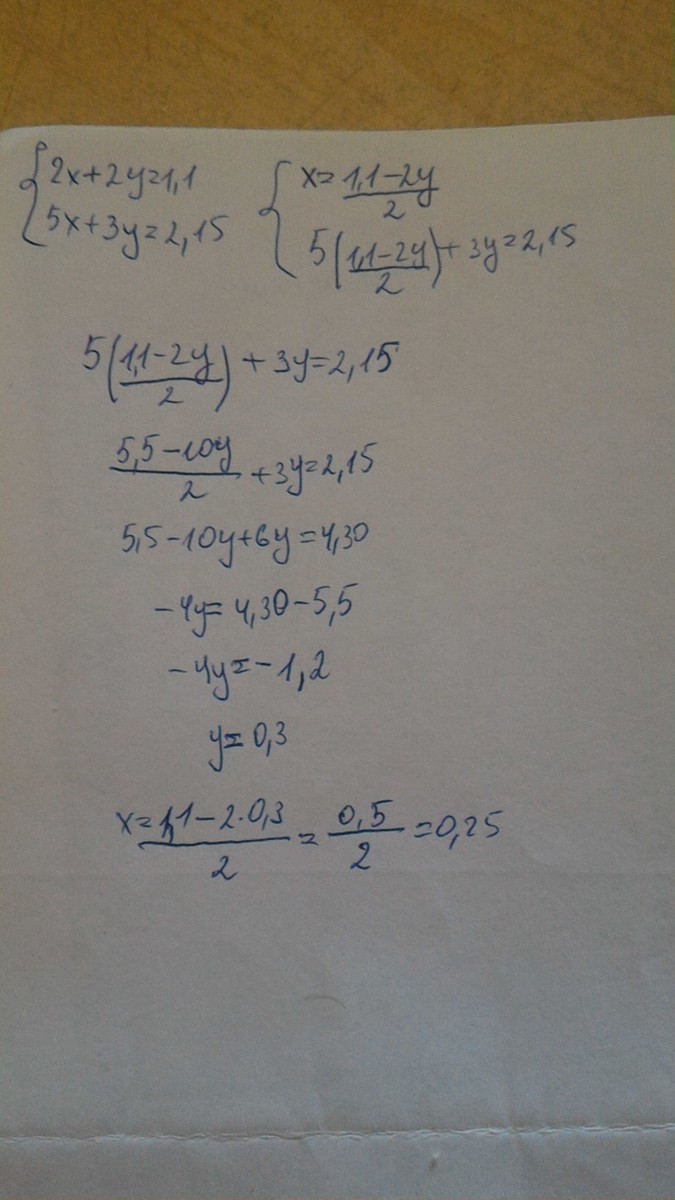 {2x+2y=1,1
5x+3y=2,15
{x=(1,1-2y)/2
5((1,1-2y)/2)+3y=2,15
5((1,1-2y)/2)+3y=2,15
(5,5-10y)/2+3y=2,15
5,5-10y+6y=4,30
-4y=4,30-5,5
-4y=-1,2
y=0,3
x=(1,1-2·0,3)/2=0,5/2=0,25